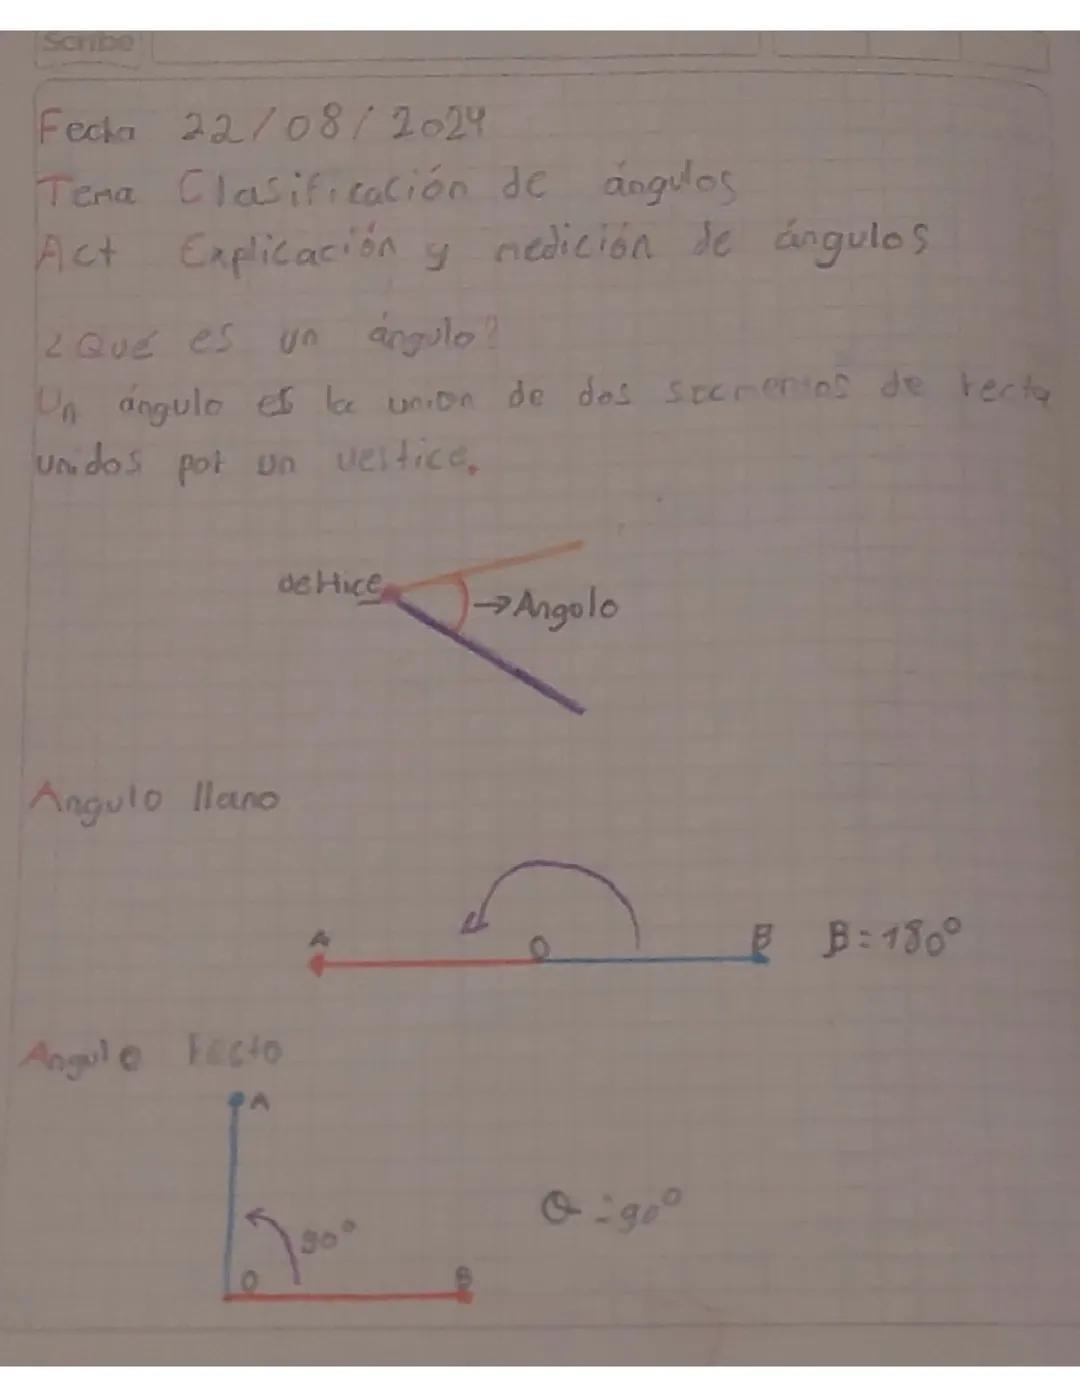 Scribe
Fecha 22/08/2024
Tema Clasificación de ángulos
Act Explicación y medición de ángulos
¿Qué es un ángulo?
Un ángulo es la union de dos de recta
unidos por un vertice.
vertice
→Angolo
Angulo llano
A O B β=180°
Angulo recto
A
90°
θ=90°
O B